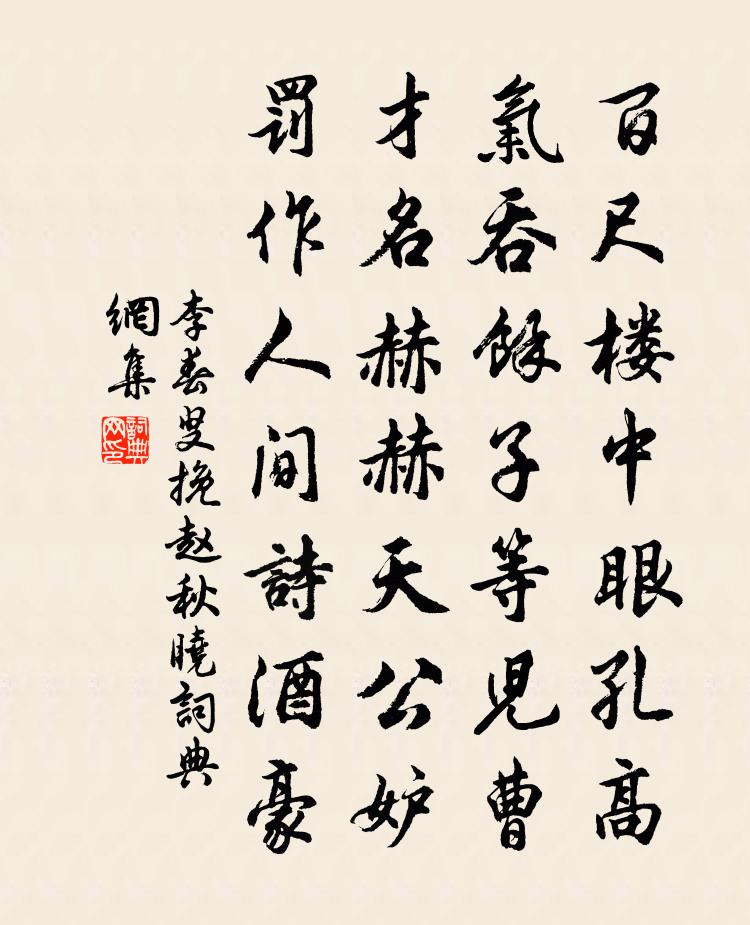 百尺楼中眼孔高
氣吞餘子等兒曹
才名赫赫天公妒
罰作人间詩酒豪
李春叟挽赵秋曉詞典
網集
詞典网印